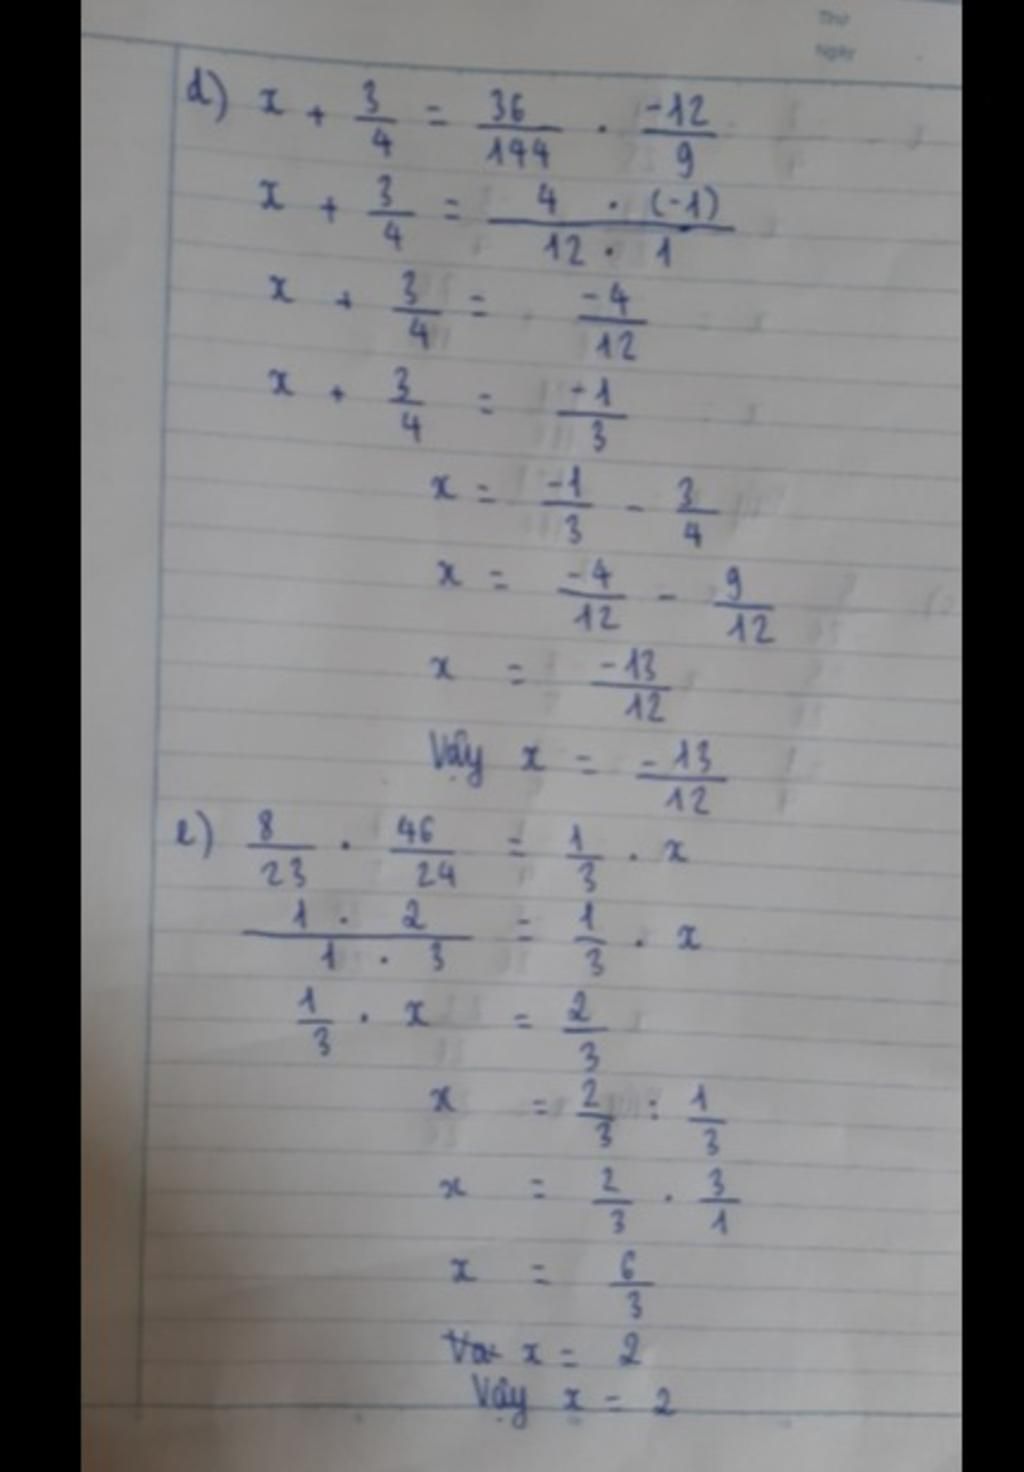 Thứ
Ngày
d) x + 3/4 = 36/144 . -12/9
x + 3/4 = 4 . (-1)/12 . 1
x + 3/4 = -4/12
x + 3/4 = -1/3
x = -1/3 - 3/4
x = -4/12 - 9/12
x = -13/12
Vậy x = -13/12
e) 8/23 . 46/24 = 1/3 . x
1 . 2/1 . 3 = 1/3 . x
1/3 . x = 2/3
x = 2/3 : 1/3
x = 2/3 . 3/1
x = 6/3
x = 2
Vậy x = 2